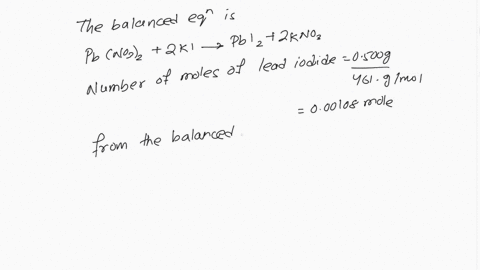 The balanced eqⁿ is
Pb(NO3)2 + 2KI → PbI2 + 2KNO2
Number of moles of lead iodide = 0.500g / 461.g/mol
= 0.00108 mole
from the balanced